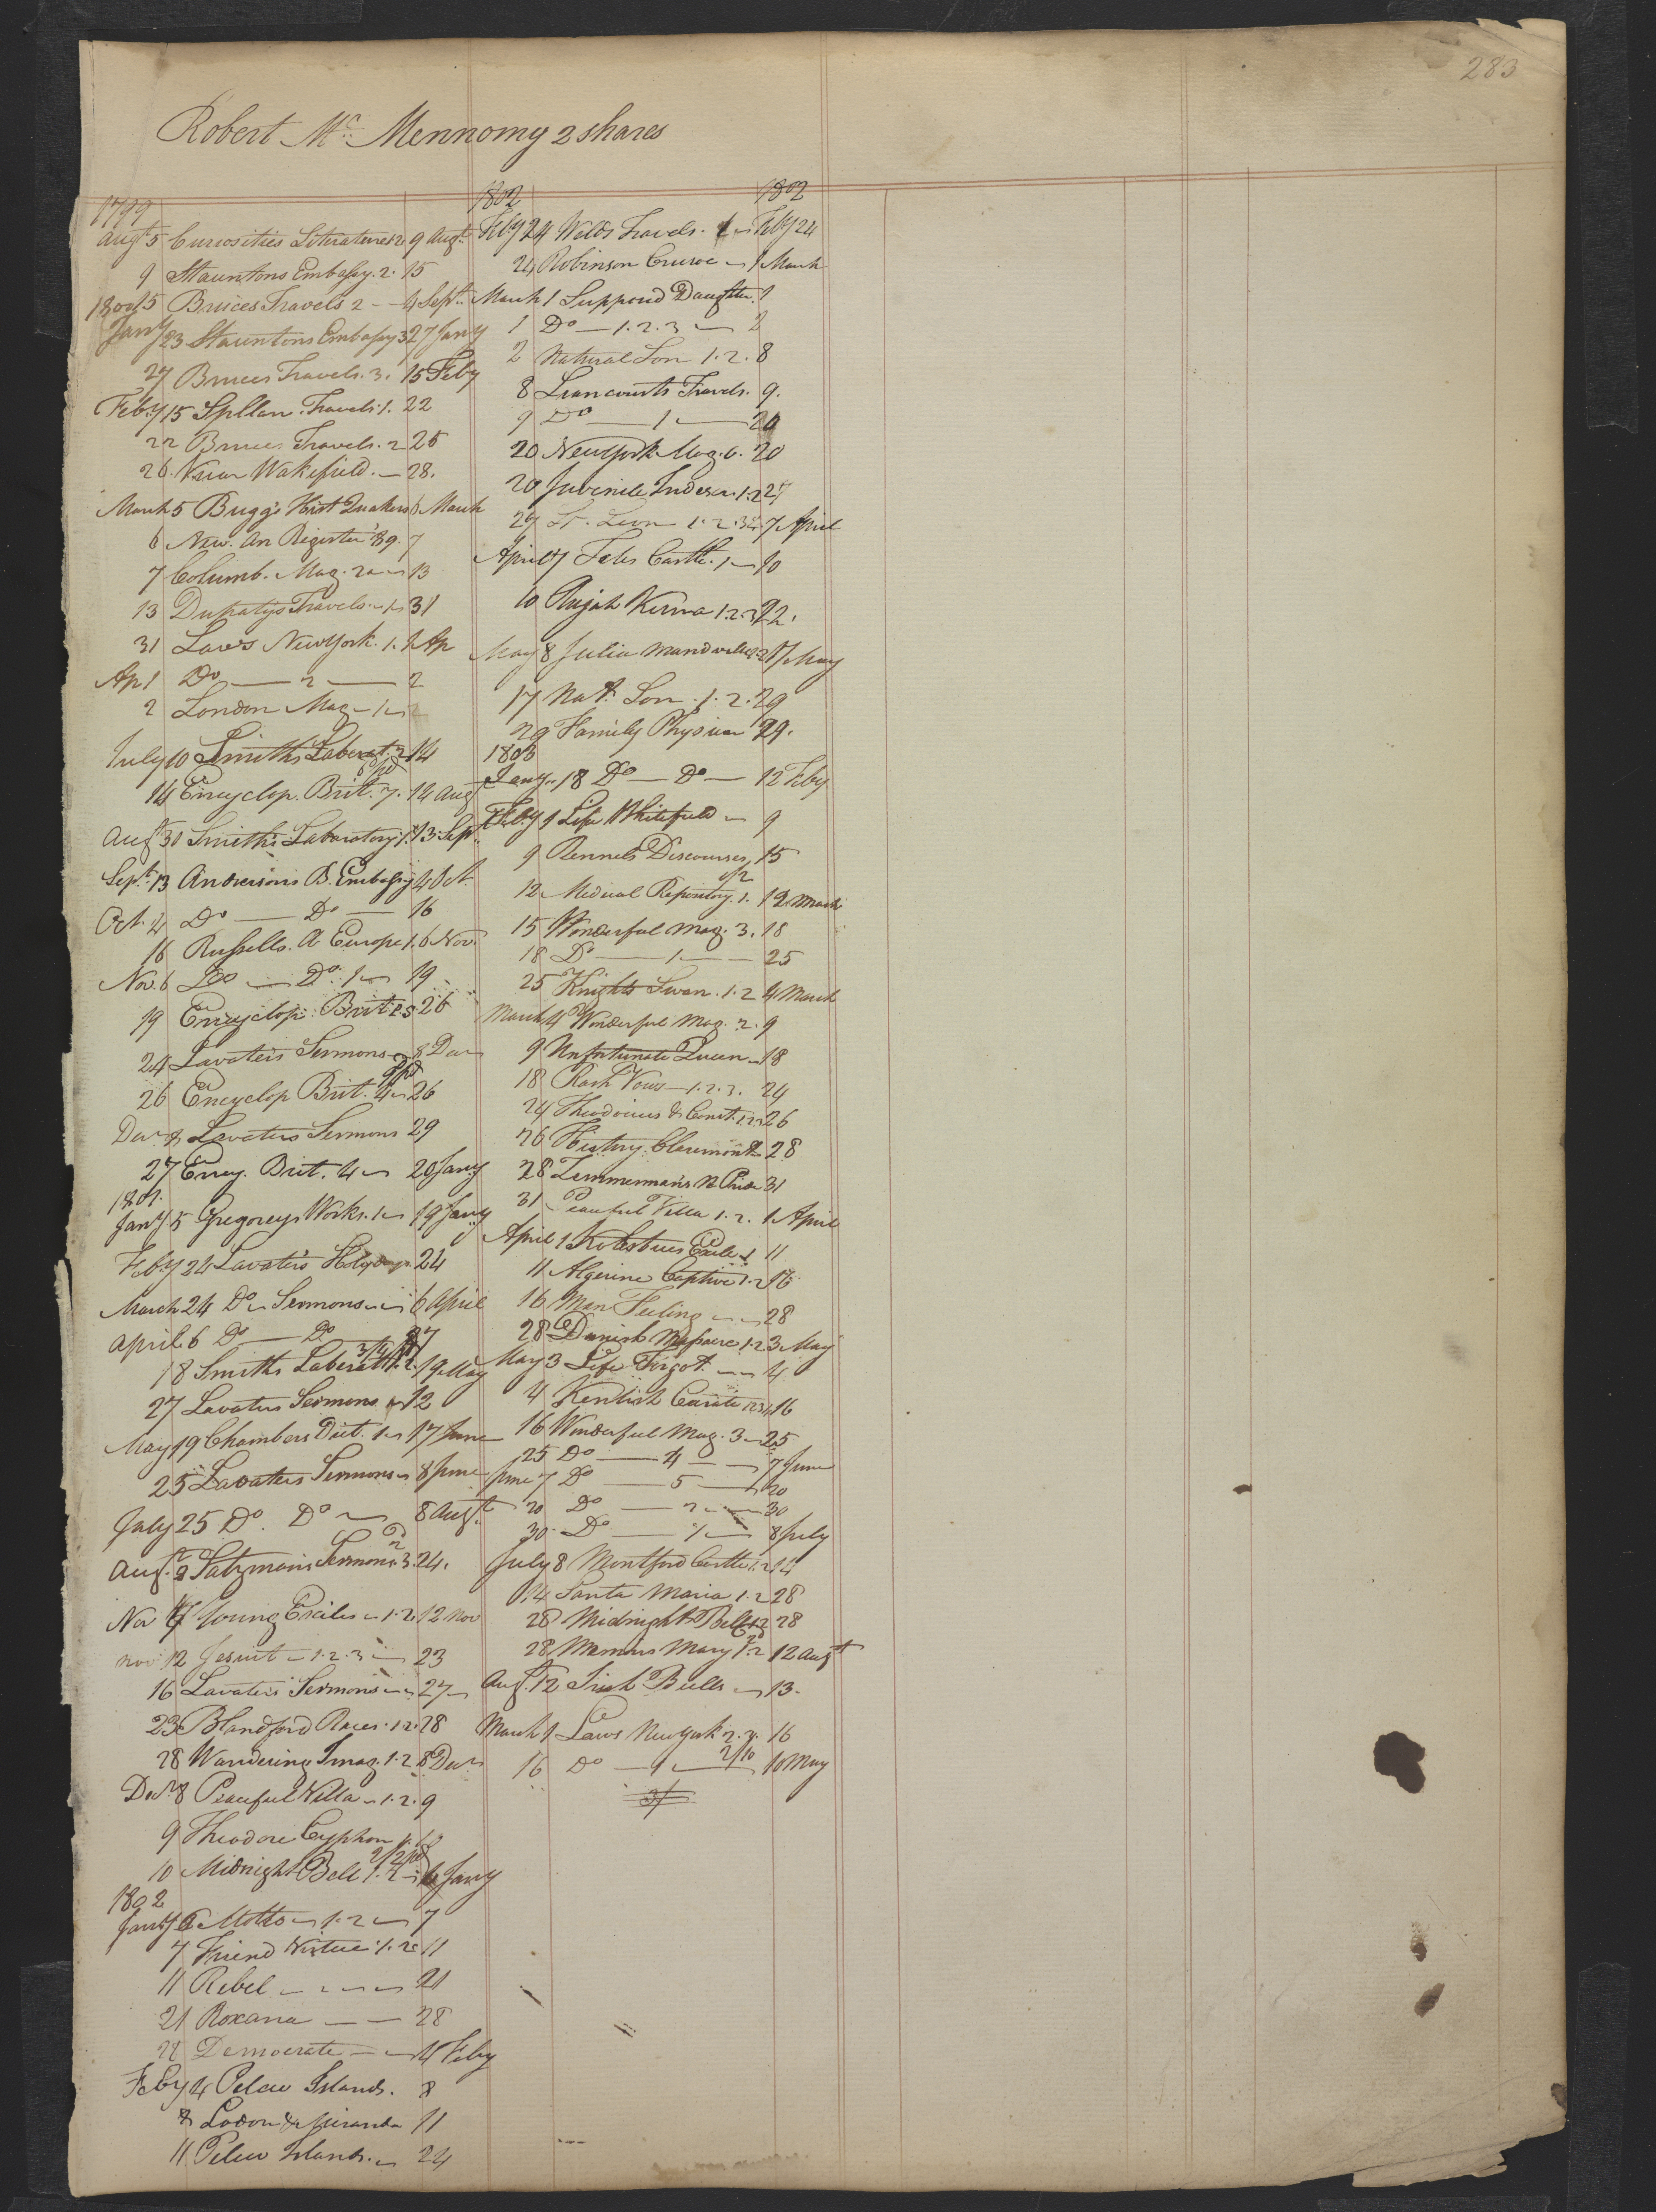 283
Robert Mc Mennomy 2 shares
1799
Augt 5 Curiosities Literature 1.2 9 Augt
9 Stauntons Embassy. 2. 15
15 Bruces Travels 2 - 4 Sept
1800
Jany 23 Stauntons Embassy 3 27 Jany
27 Bruces Travels. 3. 15 Feby
Feby 15 Spllan. Travels. 1. 22
22 Bruces Travels. 2 25
26. Vicar Wakefield. - 28.
March 5 Bugg's Hist Quakers 6 March
6 New. An Register '89. 7
7 Columb. Mag. 13
13 Dupatys Travels - 1 - 31
31 Laws New York. 1. 1 Ap
Ap 1 Do — 2 — 2
2 London Mag - 1 - 2
July 10 Smiths Laborat. 2 14
14 Encyclop. Brit. 7. 14 Aug
Augt 30 Smith's Laboratory 1. 13 Sept
Sept. 13 Andersons B. Embassy 4 Oct.
Oct. 4 Do — Do — 16
16 Russells. A Europe 1. 6 Nov.
Nov. 6 Do — Do. 1 - 19
19 Encyclop. Brit 26
24 Lavaters Sermons - 8 Decr
26 Encyclop Brit. 4 - 26
Decr 8 Lavaters Sermons 29
27 Ency. Brit. 4 - 20 Jany
1801.
Jany 5 Gregorys Works. 1 - 19 Jany
Feby 24 Lavater's Holydays. 24
March 24 Do - Sermons - 6 April
April 6 Do — Do 27
18 Smiths Laborat 1.2. 19 May
27 Lavaters Sermons - 12
May 19 Chambers Dict. 1 - 17 June
25 Lavaters Sermons - 8 June
July 25 Do. Do - 8 Augt
Augt. 8 Salzmans Sermons 3. 24.
Nov 7 Young Exiles - 1.2. 12 Nov
Nov 12 Jesuit - 1.2.3 - 23
16 Lavaters Sermons - 27
23 Blandford Races. 1.2. 28
28 Wandering Imag. 1.2 8 Decr
Decr 8 Peaceful Villa - 1.2. 9
9 Theodore Cyphon 1. 10
10 Midnight Bell 1.2 - 6 Jany
1802
Jany 6 Motto - 1.2 - 7
7 Friend Virtue. 1.2 11
11 Rebel - - - 21
21 Roxana — 28
28 Democrate — 4 Feby
Feby 4 Pelew Islands. 8
8 Lodon & Miranda 11
11 Pelew Islands. - 24
1802 1802
Feby 24 Welds Travels. 1 - Feby 24
24 Robinson Crusoe - 1 March
March 1 Supposd Daughter. 1
1 Do — 1.2.3 — 2
2 Natural Son 1.2. 8
8 Liancourts Travels. 9.
9 Do — 1 — 20
20 New York Mag. 6. 20
20 Juvenile Indiscn. 1.2 27
27 St. Leon 1.2.3 7 April
April 7 Tales Castle. 1 - 10
10 Rajah Kisna 1.2.3 22.
May 8 Julia Mandville 1.2 17 May
17 Nat. Son. 1.2. 29
29 Family Physician 29.
1803
Jany. 18 Do — Do — 12 Feby
Feby 1 Life Whitefield - 9
9 Rennels Discourses 15
12 Medical Repository. 1. 12 March
15 Wonderful Mag. 3. 18
18 Do — 1 — 25
25 Knights Swan. 1.2 4 March
March 4 Wonderful Mag. 2. 9
9 Unfortunate Queen - 18
18 Rash Vows - 1.2.3. 24
24 Theodosius & Const. 1.2 26
26 History Claremont 28
28 Zimmermans N Pride 31
31 Peaceful Villa 1.2. 1 April
April 1 Kotzebues Exile 1 11
11 Algerine Captive 1.2 16
16 Man Feeling - - 28
28 Danish Massacre 1.2 3 May
May 3 Life Turgot. - - 4
4 Kentish Curate 1234 16
16 Wonderful Mag. 3 - 25
25 Do — 4 — 7 June
June 7 Do — 5 — 20
20 Do — 2 — 30
30 Do — 1 — 8 July
July 8 Montford Castle 1.2 14
14 Santa Maria 1.2 28
28 Midnight Bell 1.2 28
28 Memoirs Mary 1.2 12 Augt
Augt. 12 Irish Bulls - 13.
March 1 Laws New York 2.3. 16
16 Do — 1 — 2/10 10 May